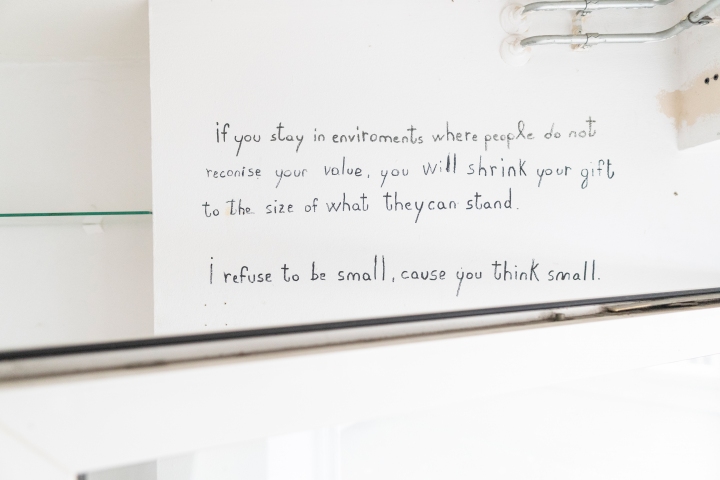 if you stay in enviroments where people do not
reconise your value, you will shrink your gift
to the size of what they can stand.
I refuse to be small, cause you think small.